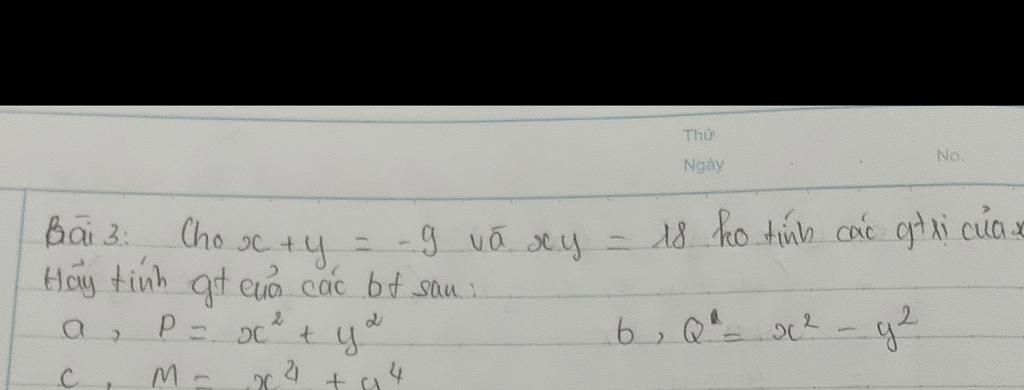 Thứ
Ngày
No.
Bài 3: Cho x + y = -9 và xy = 18 ko tính các gtrị của x
Hãy tính gt của các bt sau:
a, P = x² + y²
b, Q = x² - y²
c, M = x⁴ + y⁴